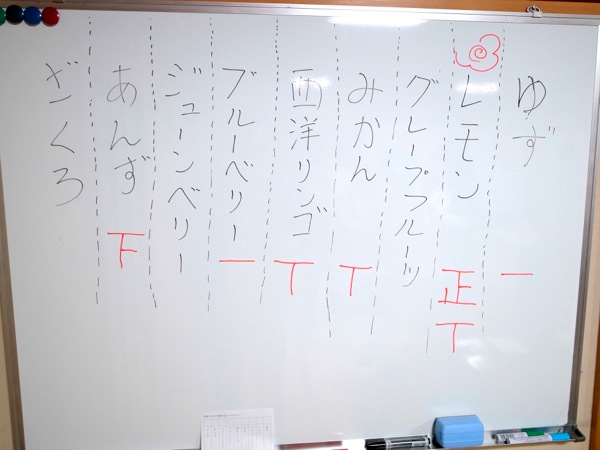 ゆず 一
レモン 正丅
グレープフルーツ
みかん 丅
西洋リンゴ 丅
ブルーベリー 一
ジューンベリー
あんず 下
ざくろ